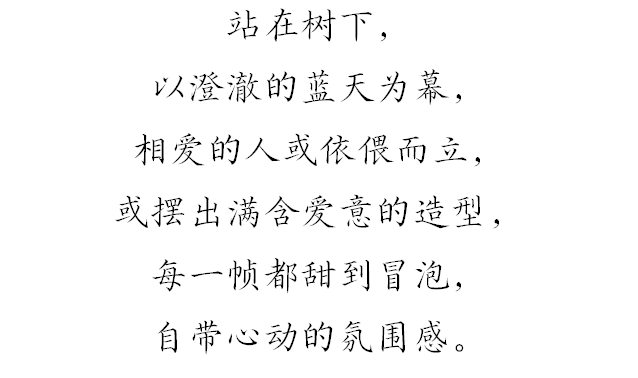 站在树下，
以澄澈的蓝天为幕，
相爱的人或依偎而立，
或摆出满含爱意的造型，
每一帧都甜到冒泡，
自带心动的氛围感。